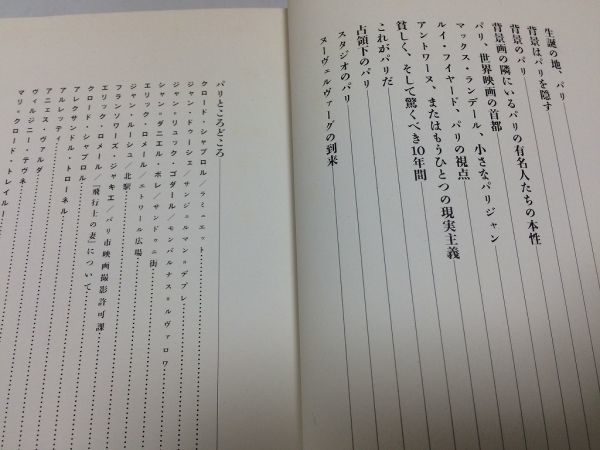 生誕の地、パリ
背景はパリを隠す
背景のパリ
背景画の隣にいるパリの有名人たちの本性
パリ、世界映画の首都
マックス・ランデール、小さなパリジャン
ルイ・フイヤード、パリの視点
アントワーヌ、またはもうひとつの現実主義
貧しく、そして驚くべき10年間
これがパリだ
占領下のパリ
スタジオのパリ
ヌーヴェルヴァーグの到来
パリところどころ
クロード・シャブロル/ラ・ミュエット
ジャン・ドゥーシェ/サンジェルマン=デ=プレ
ジャン=リュック・ゴダール/モンパルナス=ルヴァロワ
ジャン=ダニエル・ポレ/サンドゥニ街
エリック・ロメール/エトワール広場
ジャン・ルーシュ/北駅
フランソワーズ・ジャキエ/パリ市映画撮影許可課
エリック・ロメール/『飛行士の妻』について
クロード・シャブロル
アルレッティ
アレクサンドル・トローネル
アニエス・ヴァルダ
ヴィルジニー・テヴネ
マリ・クロード・トレイルー